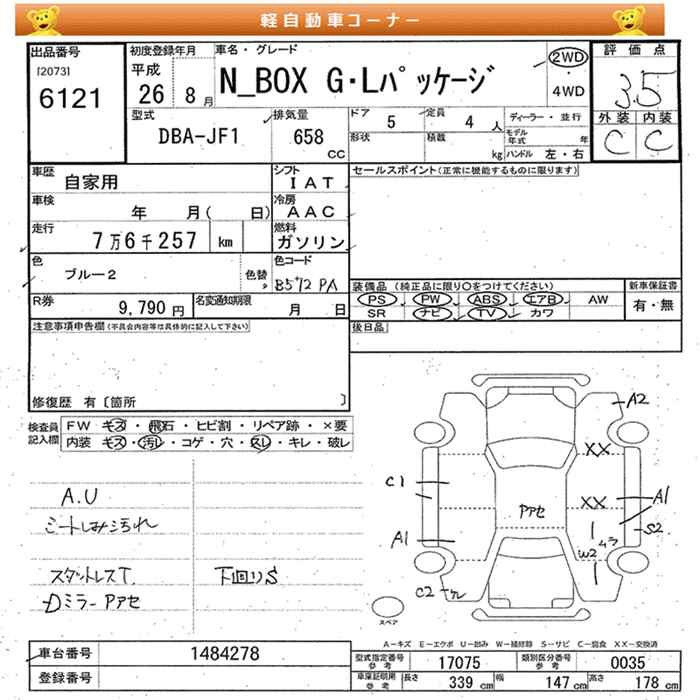 軽自動車コーナー
出品番号
[2073]
6121
初度登録年月
平成
26 8月
車名・グレード
N_BOX G・Lパッケージ
2WD
4WD
評価点
3.5
外装 内装
C C
型式
DBA-JF1
排気量
658
CC
ドア
5
定員
4 人
形状
積載
kg
ディーラー・並行
モデル年式 年
ハンドル 左・右
車歴
自家用
シフト
IAT
セールスポイント(正常に機能するものに限ります)
車検
年 月( 日)
冷房
AAC
走行
7万6千257 km
燃料
ガソリン
色
ブルー2
色替
色コード
B592 PA
装備品 (純正品に限り○をつけてください)
新車保証書
PS PW ABS エアB AW
有・無
SR ナビ TV カワ
R券
9,790 円
名変通知期限
月 日
後日品
注意事項申告欄(不具合内容等は具体的に記入して下さい)
修復歴 有〔箇所 〕
検査員記入欄
FW キズ・飛石・ヒビ割・リペア跡・×要
内装 キズ・汚れ・コゲ・穴・スレ・キレ・破レ
A.U
シートしみ汚れ
スタットレスT.
下回りS
Dミラー PアセA2
XX
C1
XX
Pアせ
A1
A1
S2
ムラ
W2
C2
スペア
A-キズ E-エクボ U-凹み W-補修跡 S-サビ C-腐食 XX-交換済
車台番号
1484278
登録番号
型式指定番号 参考
17075
類別区分番号 参考
0035
車庫証明用 参考
長さ 339 cm
幅 147 cm
高さ 178 cm